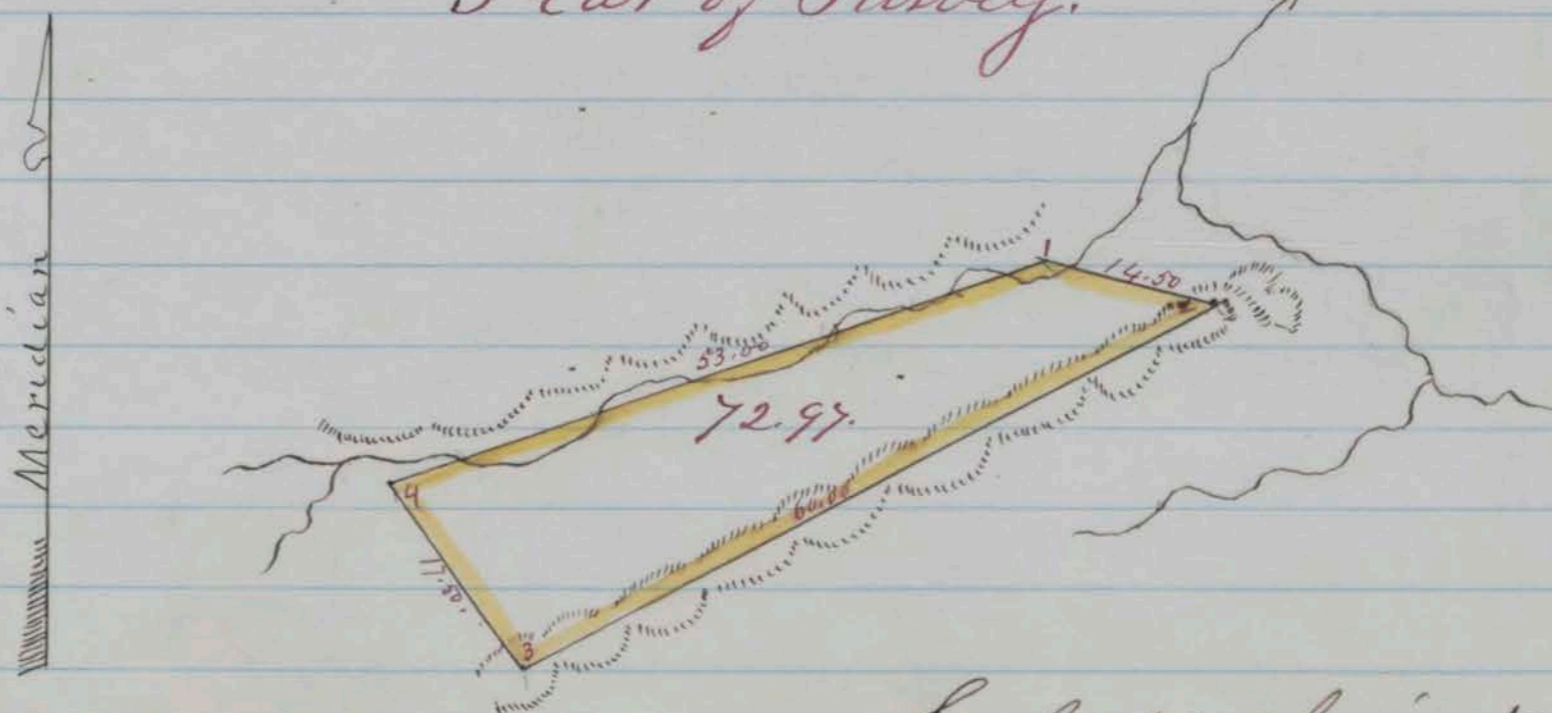 Plat of Survey.
Meridian
1
14.50
2
53.00
72.97.
4
60.00
17.50.
3